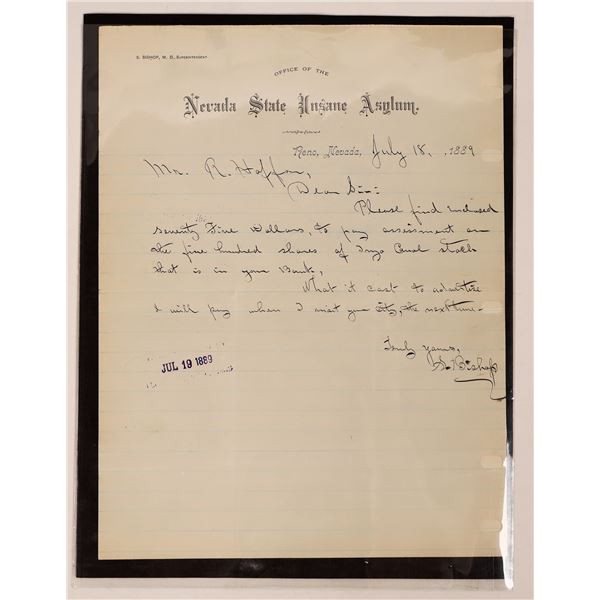 S. BISHOP, M. D., SUPERINTENDENT
OFFICE OF THE
Nevada State Insane Asylum.
Reno, Nevada, July 18, 1889
Mr. R. Hoffon,
Dear Sir:
Please find enclosed
seventy Five Dollars, to pay assessment on
the five hundred shares of Canal stock
that is in your Bank,
What it cost to advertize
I will pay when I visit your city, the next time.
Truly yours,
S. Bishop
JUL 19 1889